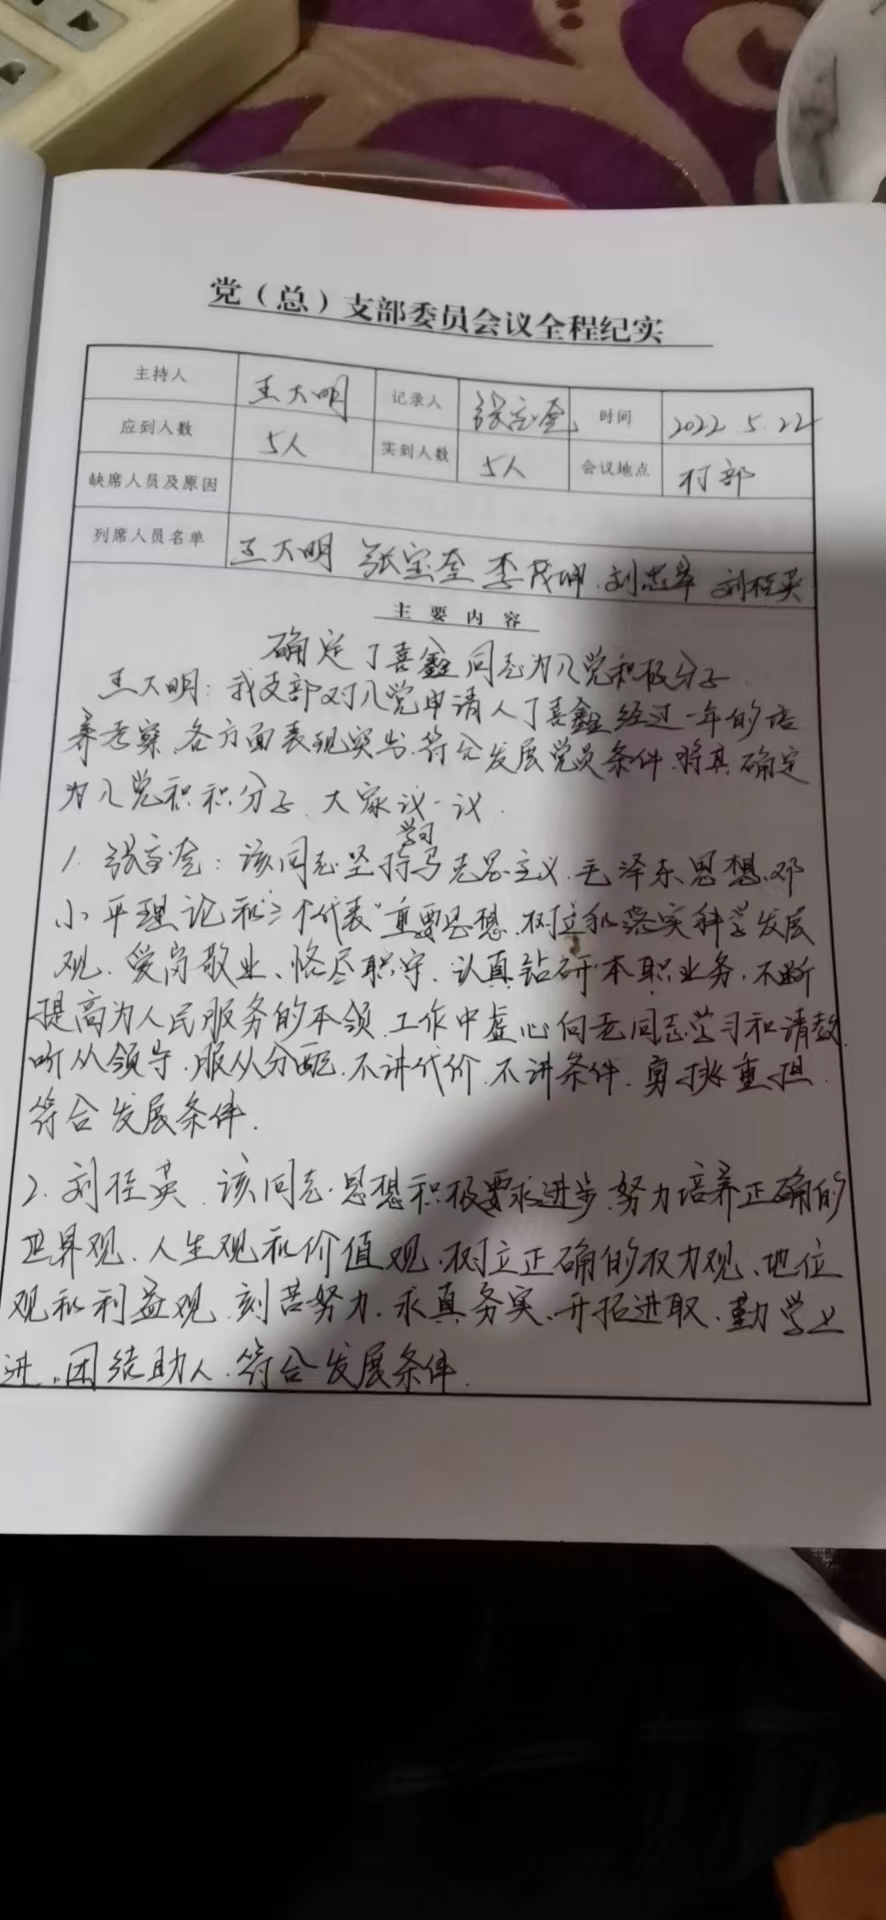 党（总）支部委员会议全程纪实
主持人 王大明 记录人 张宝奎 时间 2022 5.22
应到人数 5人 实到人数 5人 会议地点 村部
缺席人员及原因
列席人员名单 王大明 张宝奎 李茂坤 刘忠举 刘桂英
主要内容
确定丁喜鑫同志为入党积极分子
王大明：我支部对入党申请人丁喜鑫经过一年的培
养考察、各方面表现突出、符合发展党员条件、将其确定
为入党积积分子、大家议一议
学习
1. 张宝奎：该同志坚持马克思主义、毛泽东思想、邓
小平理论和“三个代表”重要思想、树立和落实科学发展
观、爱岗敬业、恪尽职守、认真钻研本职业务、不断
提高为人民服务的本领、工作中虚心向老同志学习和请教、
听从领导、服从分配、不讲代价、不讲条件、勇挑重担
符合发展条件.
2. 刘桂英、该同志思想积极要求进步、努力培养正确的
世界观、人生观和价值观、树立正确的权力观、地位
观和利益观、刻苦努力、求真务实、开拓进取、勤学上
进、团结助人、符合发展条件.